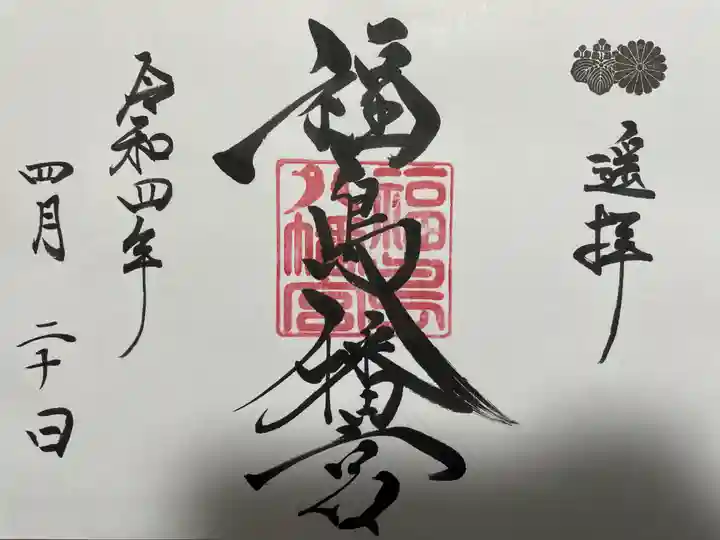 遥拝
福島八幡宮
福島
八幡宮
令和四年
四月二十日